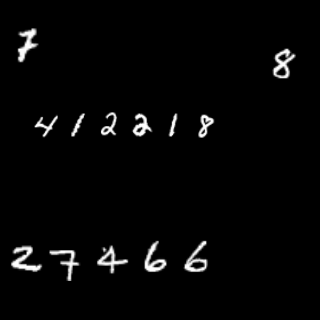 7
8
412218
27466